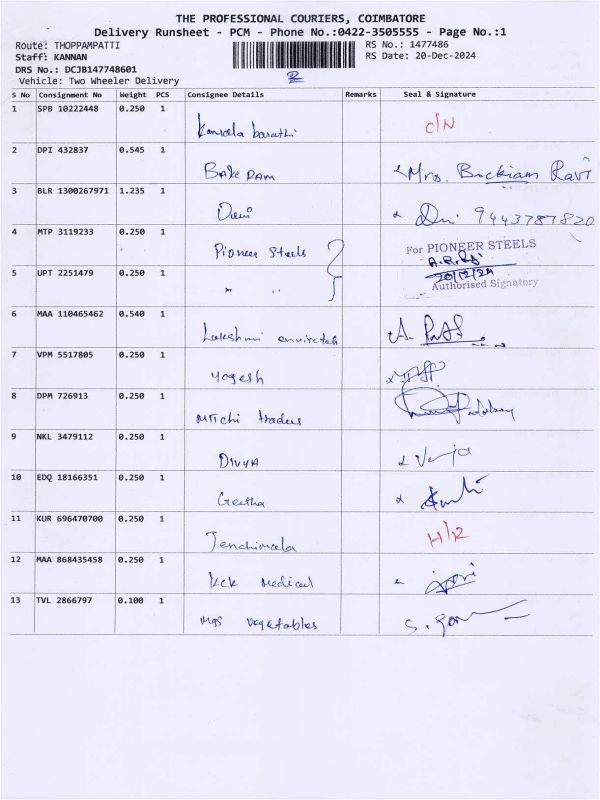 THE PROFESSIONAL COURIERS, COIMBATORE
Delivery Runsheet - PCM - Phone No.:0422-3505555 - Page No.:1
Route: THOPPAMPATTI RS No.: 1477486
Staff: KANNAN RS Date: 20-Dec-2024
DRS No.: DCJB147748601
Vehicle: Two Wheeler Delivery
S No Consignment No Weight PCS Consignee Details Remarks Seal & Signature
1 SPB 10222448 0.250 1 Kamala barathi C/N
2 DPI 432837 0.545 1 Bake Dam Mrs. Buckiam Ravi
3 BLR 1300267971 1.235 1 Devi 9443787820
4 MTP 3119233 0.250 1 Pioneer Steels For PIONEER STEELS
20/12/24
5 UPT 2251479 0.250 1 " " Authorised Signatory
6 MAA 110465462 0.540 1 Lakshmi
7 VPM 5517805 0.250 1 Yogesh
8 DPM 726913 0.250 1 traders
9 NKL 3479112 0.250 1 DIVYA
10 EDQ 18166351 0.250 1 Geetha
11 KUR 696470700 0.250 1 H/R
12 MAA 868435458 0.250 1 KCK Medical
13 TVL 2866797 0.100 1 Mgs vegetables